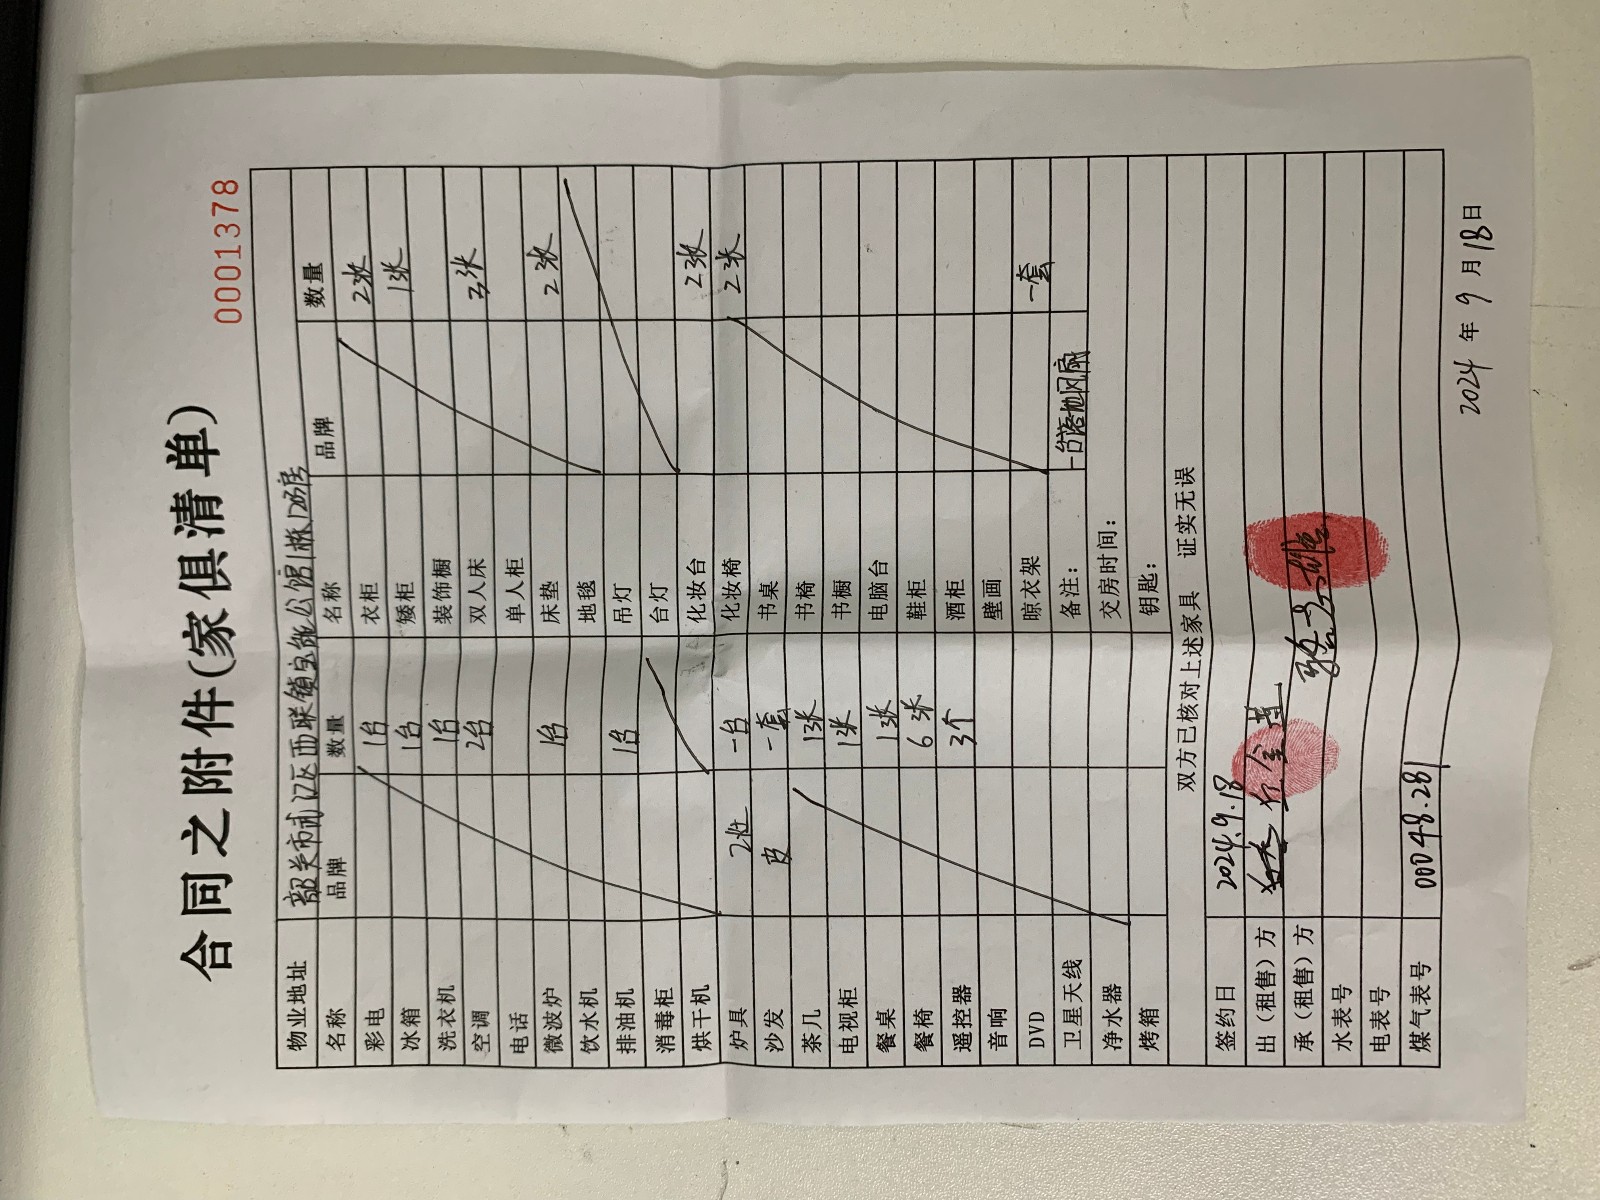 合同之附件(家俱清单)
0001378
物业地址 韶关市武江区西联镇宝能公馆1栋1205房
名称 品牌 数量 名称 品牌 数量
彩电 1台 衣柜 2张
冰箱 1台 矮柜 1张
洗衣机 1台 装饰橱
空调 2台 双人床 3张
电话 单人柜
微波炉 1台 床垫 2张
饮水机 地毯
排油机 1台 吊灯
消毒柜 台灯
烘干机 化妆台 2张
炉具 2灶 一台 化妆椅 2张
沙发 皮 一套 书桌
茶几 1张 书椅
电视柜 1张 书橱
餐桌 1张 电脑台
餐椅 6张 鞋柜
遥控器 3个 酒柜
音响 壁画
DVD 晾衣架 一套
卫星天线 备注: 一台落地风扇
净水器 交房时间:
烤箱 钥匙:
双方已核对上述家具 证实无误
签约日 2024.9.18
出(租售)方
承(租售)方
水表号
电表号
煤气表号 00048.281
2024 年 9 月 18 日